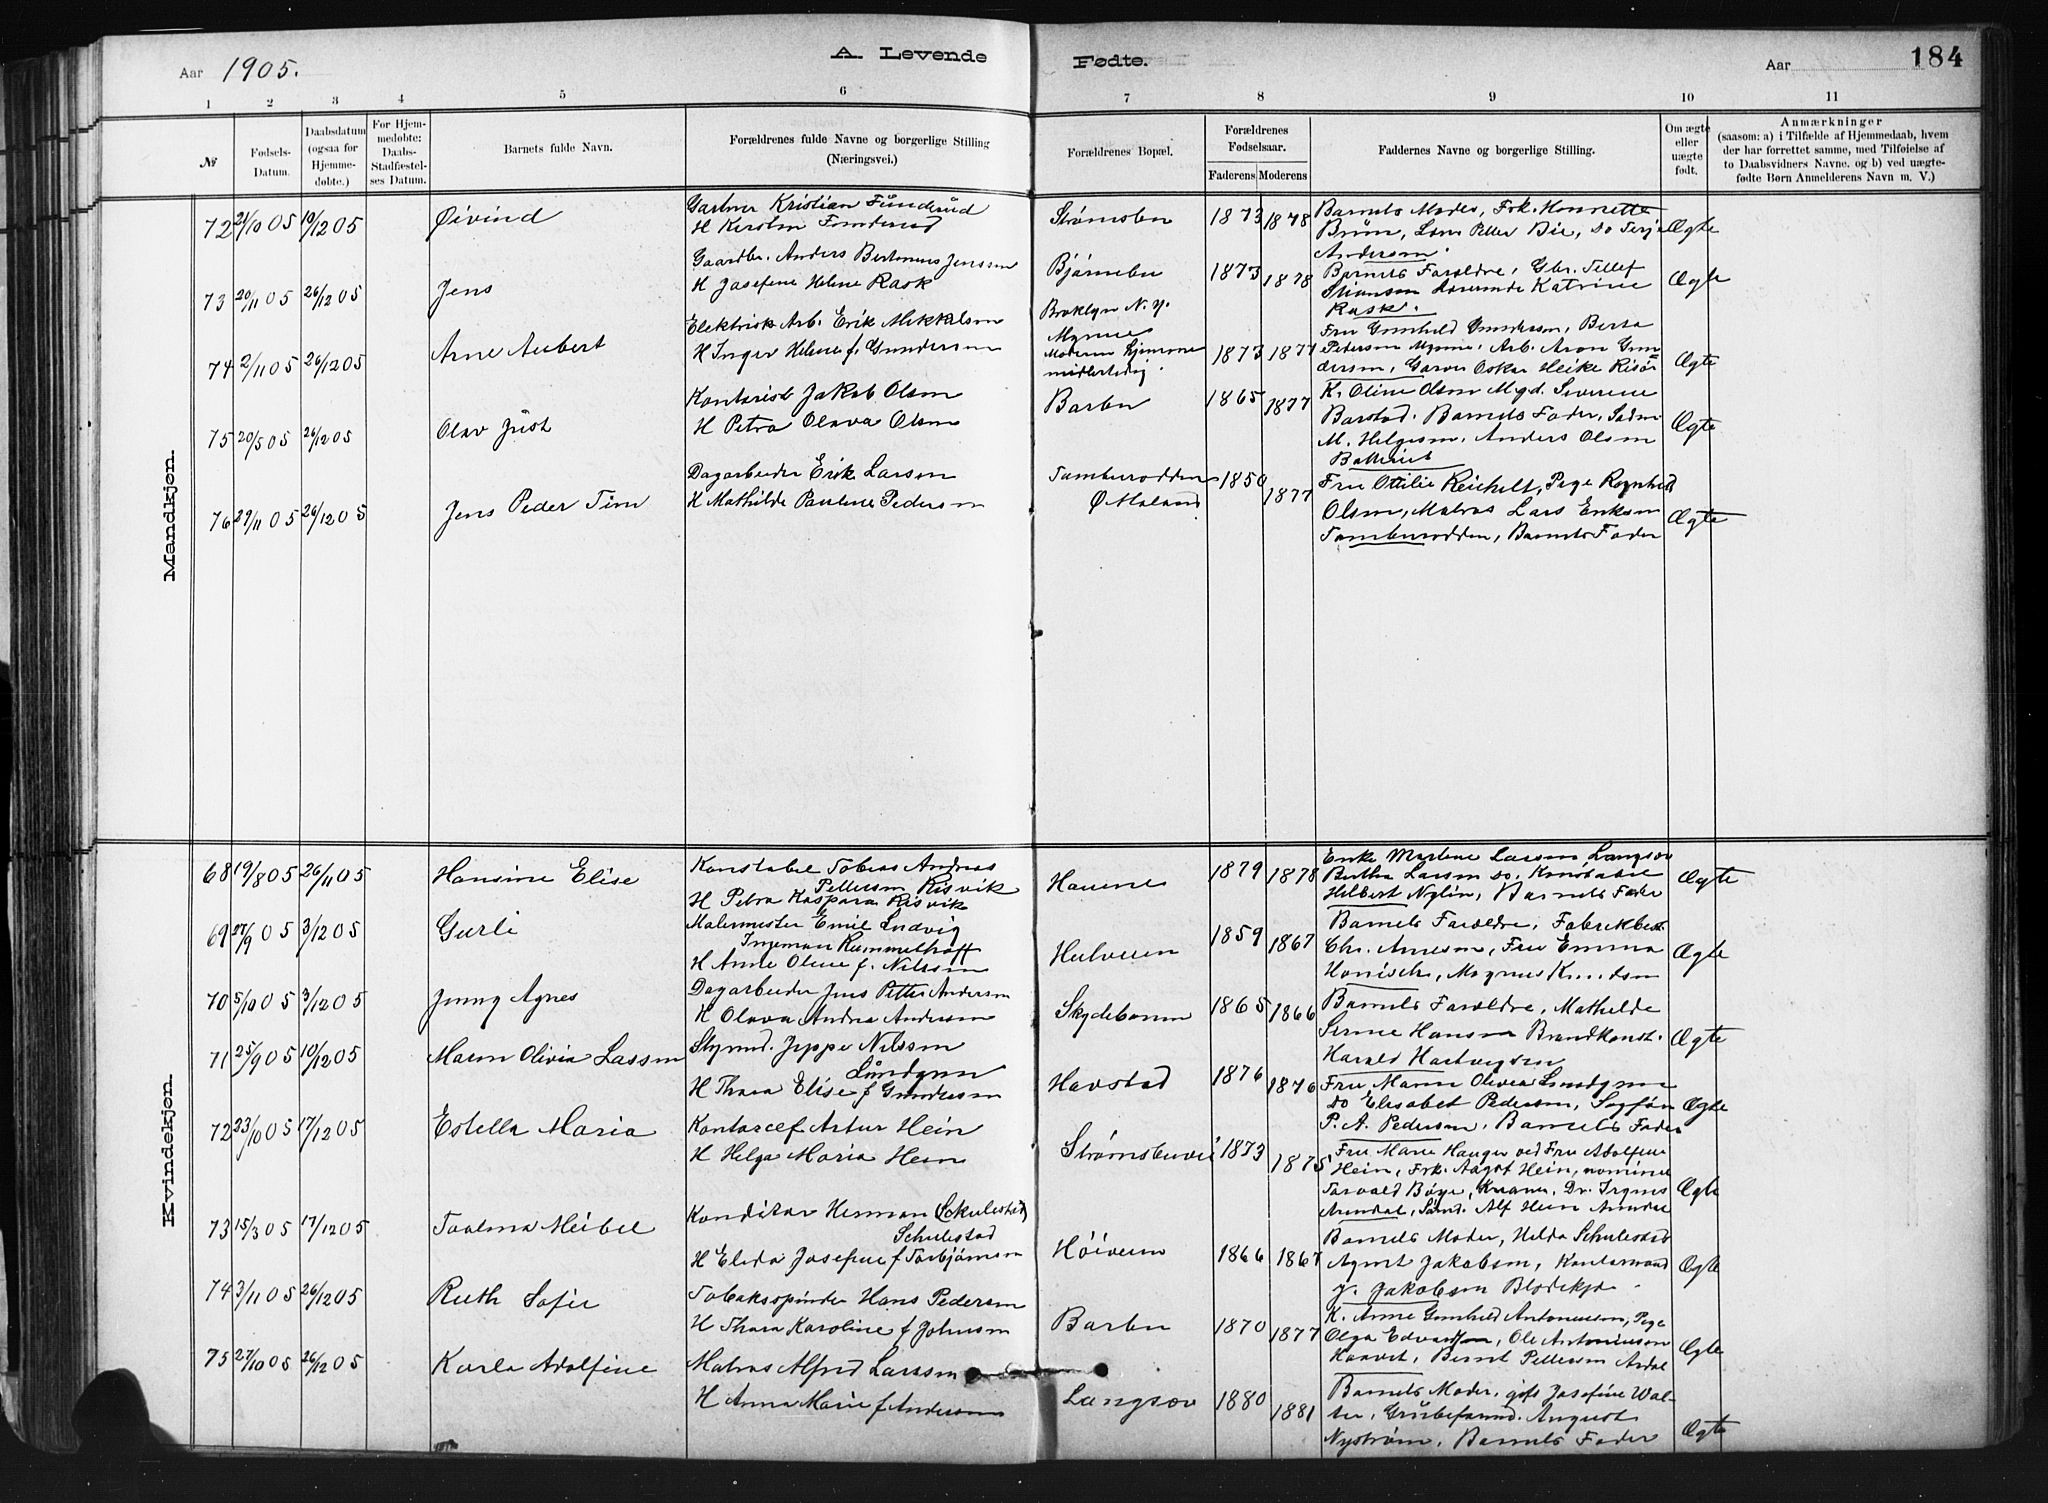 Aar 1905.
A. Levende
Fødte.
Aar
184
1 2 3 4 5 6 7 8 9 10 11
№
Fødsels-
Datum.
Daabsdatum
(ogsaa for
Hjemme-
døbte.)
For Hjem-
medøbte:
Daabs-
Stadfæstel-
ses Datum.
Barnets fulde Navn.
Forældrenes fulde Navne og borgerlige Stilling
(Næringsvei.)
Forældrenes Bopæl.
Forældrenes
Fødselsaar.
Faderens Moderens
Faddernes Navne og borgerlige Stilling.
Om ægte
eller
uægte
født.
Anmærkninger
(saasom: a) i Tilfælde af Hjemmedaab, hvem
der har forrettet samme, med Tilføielse af
to Daabsvidners Navne. og b) ved uægte-
fødte Børn Anmelderens Navn m. V.)
Mandkjøn.
72 21/10 05 19/12 05
Øivind
Gartner Kristian Funderud
H Kirstin Funderud
Strømsbu
1873 1878
Barnets Moder, Frk. Henriette
Bruun, Petter Bie, Do Terje
Andersen
Ægte
73 20/11 05 26/12 05
Jens
Gaardbr. Anders Bertinius Jenssen
H Josefine Helene Rask
Bjørnebu
1873 1878
Barnets Forældre, Gbr. Tellef
Katrine
Rask.
Ægte
74 2/11 05 26/12 05
Arne Aubert
Elektrisk Arb. Erik Mikkelsen
H Inger Helene f. Gundersen
Broklyn N. Y.
Myrene
Moderen hjemme
midlertidig.
1873 1877
Fru Gunhild Gundersen, Berta
Pedersen Myrene, Arb. Aron Gun-
dersen, Garver Oskar Heike Risør
Ægte
75 20/5 05 26/12 05
Olav Just
Kontorist Jakob Olsen
H Petra Olava Olsen
Barbu
1865 1877
K. Oline Olsen Mgd. Severine
Barstad. Barnets Fader, Sadm
M. Helgesen, Anders Olsen
Ægte
76 29/11 05 26/12 05
Jens Peder Tim
Dagarbeider Erik Larsen
H Mathilde Pauline Pedersen
Tamburodden
Ø Moland
1850 1877
Fru Ottilie Reichelt, Pige Ragnhild
Olsen, Matros Lars Eriksen
Tamburodden, Barnets Fader
Ægte
Kvindekjøn.
68 19/8 05 26/11 05
Hansine Elise
Konstabel Tobias Andreas
Pettersen Risvik
H Petra Kaspara Risvik
Havene
1879 1878
Enke Martine Larsen Langsæv
Bertha Larsen do. Konstabel
Helbert Nylin, Barnets Fader
Ægte
69 27/9 05 3/12 05
Gurli
Malermester Emil Ludvig
Ingeman Rummelhoff
H Anne Oline f. Nilssen
1859 1867
Barnets Forældre, Fabrikbest.
Chr. Arnesen, Fru Emma
Honisch, Magnus Knudsen
Ægte
70 5/10 05 3/12 05
Jenny Agnes
Dagarbeider Jens Petter Andersen
H Olava Andrea Andersen
Skydebanen
1865 1866
Barnets Forældre, Mathilde
Serine Hansen Brandkonst.
Harald Hartvigsen
Ægte
71 25/9 05 10/12 05
Maren Olivia Lassen
Styrmd. Jeppe Nilssen
Lundgren
H Thora Elise f Gundersen
Havstad
1876 1876
Fru Maren Olivia Lundgren
Do Elisabet Pedersen, Sagfør.
P. A. Pedersen, Barnets Fader
Ægte
72 23/10 05 17/12 05
Estella Maria
Kontorchef Artur Hein
H Helga Maria Hein
Strømsbuvei
1873 1875
Fru Marie Hauger ved Fru Adolfine
Hein, Frk. Aagot Hein,
Torvald Bøye,
Arendal, Alf Hein Arendal
Ægte
73 15/3 05 17/12 05
Taalma Meibel
Konditor Herman (Schulestad)
Schulestad
H Elida Josefine f Torbjørnsen
Høiveien
1866 1867
Barnets Moder, Helda Schulestad
Agnet Jakobsen, Kontormand
J. Jakobsen Blødekjær
Ægte
74 3/11 05 26/12 05
Ruth Sofie
Tobakspinder Hans Pedersen
H Thora Karoline f Johnsen
Barbu
1870 1877
K. Anne Gunhild Antonissen, Pige
Olga Edvardsen, Ole Antonissen
Haavet, Bernt Pettersen
Ægte
75 27/10 05 26/12 05
Karla Adolfine
Matros Alfred Larssen
H Anna Marie f Andersen
Langsæv
1880 1881
Barnets Moder, gift Josefine Wal-
ter, Grubeformd. August
Nystrøm, Barnets Fader
Ægte